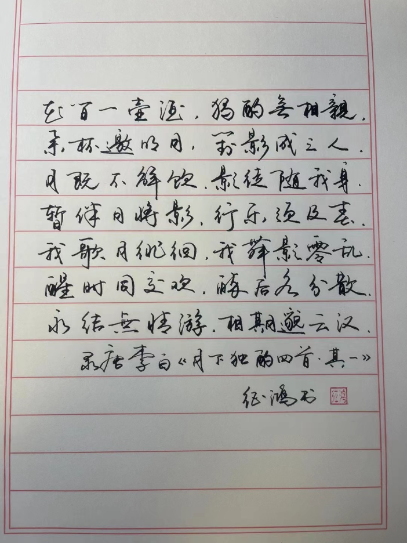 花间一壶酒，独酌無相親．
舉杯邀明月，對影成三人．
月既不解飲．影徒随我身．
暂伴月将影，行乐须及春．
我歌月徘徊，我舞影零乱．
醒时同交欢．醉后各分散．
永结無情游．相期邈云汉．
录唐李白《月下独酌四首·其一》
征鸿书